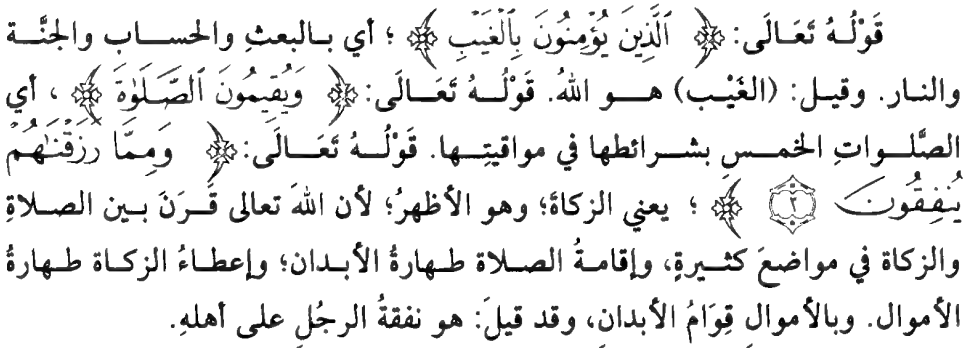 قَوْلُهُ تَعَالَى: ﴿ ٱلَّذِينَ يُؤْمِنُونَ بِٱلْغَيْبِ ﴾ ؛ أي بالبعثِ والحساب والجنَّة
والنار. وقيل: (الغَيْب) هو اللهُ. قَوْلُهُ تَعَالَى: ﴿ وَيُقِيمُونَ ٱلصَّلَوٰةَ ﴾ ، أي
الصَّلواتِ الخمسِ بشرائطها في مواقيتِها. قَوْلُهُ تَعَالَى: ﴿ وَمِمَّا رَزَقْنَٰهُمْ
يُنفِقُونَ ٣ ﴾ ؛ يعني الزكاةَ؛ وهو الأظهرُ؛ لأن اللهَ تعالى قَرَنَ بين الصلاةِ
والزكاة في مواضعَ كثيرةٍ، وإقامةُ الصلاة طهارةُ الأبدان؛ وإعطاءُ الزكاة طهارةُ
الأموال. وبالأموالِ قِوَامُ الأبدانِ، وقد قيلَ: هو نفقةُ الرجُلِ على أهلهِ.